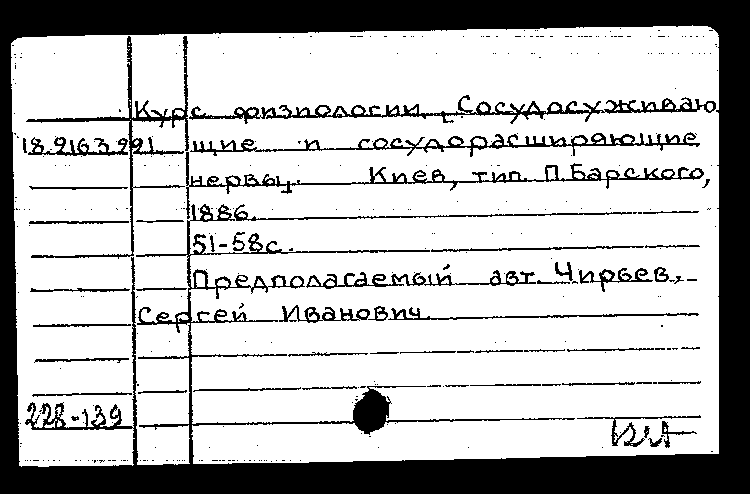 Курс физиологии. [Сосудосуживаю
18.9163.291. щие и сосудорасширяющие
нервы]. Киев, тип. П.Барского,
1886.
51-58с.
Предполагаемый авт. Чирьев,
Сергей Иванович.
228-139